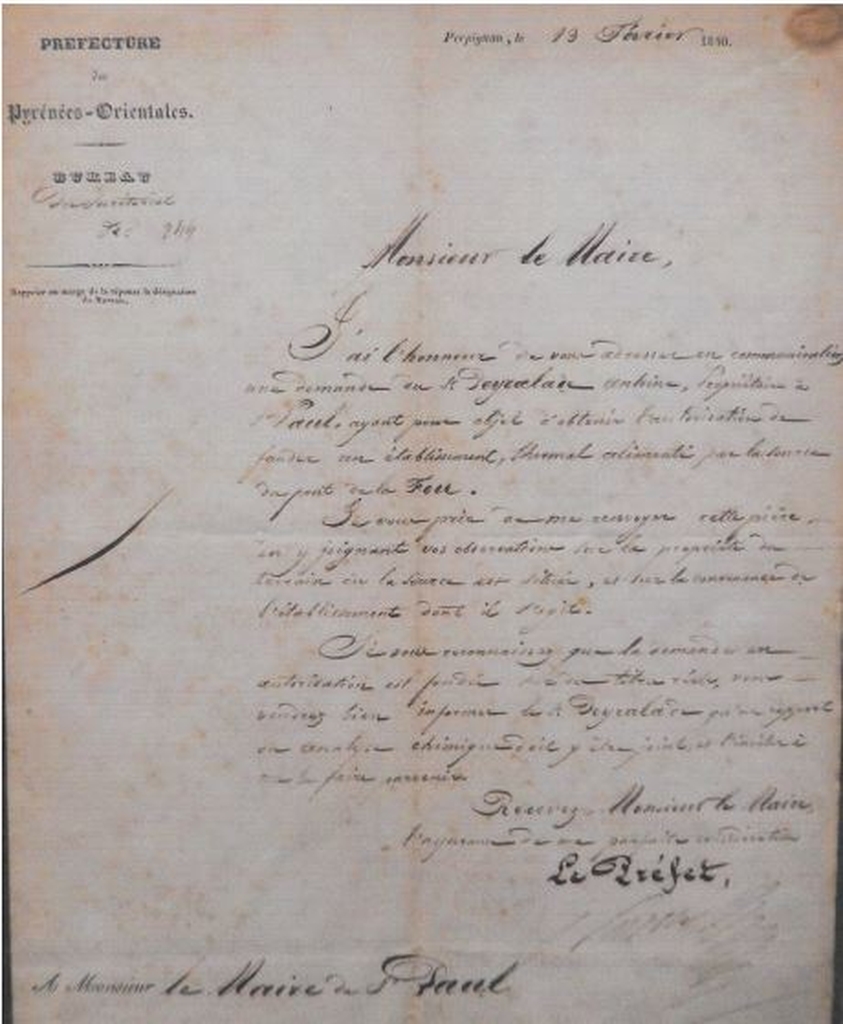 PREFECTURE
des
Pyrénées-Orientales.
BUREAU
du Secrétariat
Perpignan, le 13 Février 1840.
Rappeler en marge de la réponse la désignation
du Bureau.
Monsieur le Maire,
J'ai l'honneur de vous adresser en communication
une demande du Sr Deyralade antoine, Propriétaire à
St Paul, ayant pour objet d'obtenir l'autorisation de
fonder un établissement, thermal alimenté par la source
du pont de la Fou.
Je vous prie de me renvoyer cette pièce,
en y joignant vos observations sur la propriété du
terrain où la source est située, et sur la convenance de
l'établissement dont il s'agit.
Si vous reconnaissez que la demande en
autorisation est fondée sur un titre réel, vous
voudrez bien informer le Sr Deyralade qu'un rapport
ou analyse chimique doit y être joint, et l'inviter à
me le faire parvenir
Recevez, Monsieur le Maire,
l'assurance de ma parfaite considération
Le Préfet,
A Monsieur le Maire de St Paul